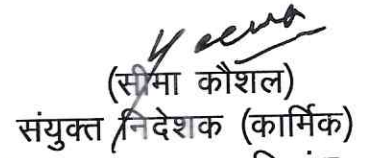 (सीमा कौशल)
संयुक्त निदेशक (कार्मिक)